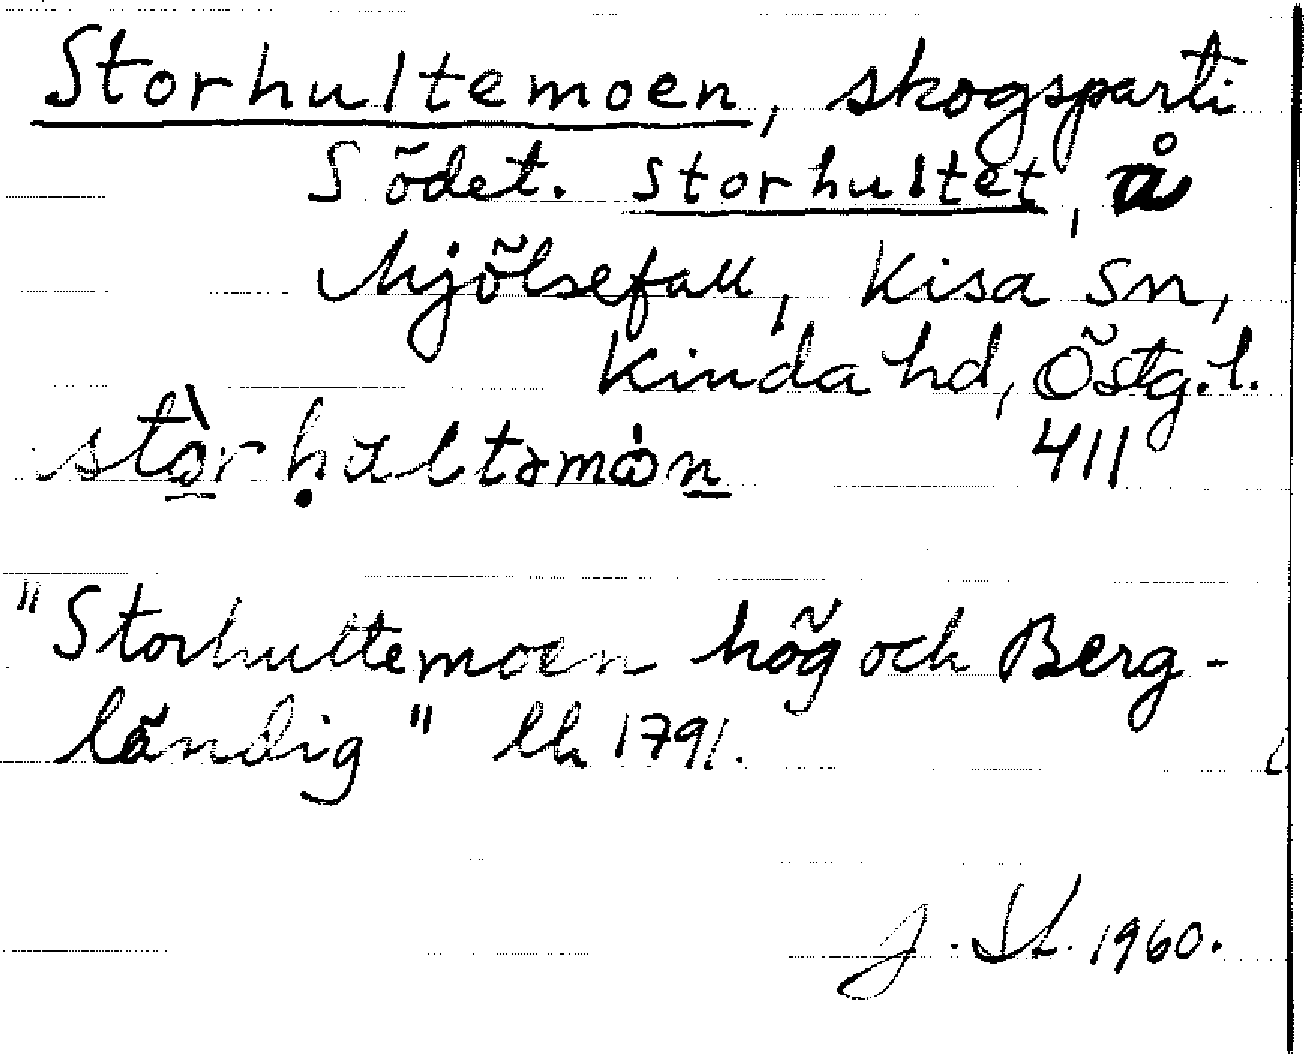 Storhultemoen, skogsparti
S ödet. Storhultet, å
Mjölsefall, Kisa sn,
Kinda hd, Östg.l.
stòrhultəmón 411
"Storhultemoen hög och Berg-
ländig" lh 1791.
J. Sk. 1960.